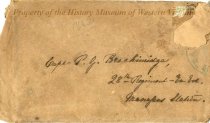 Property of the History Museum of Western V
Capt. P. G. Breckinridge,
28th Regiment - Va Vol.
Manassas Station.